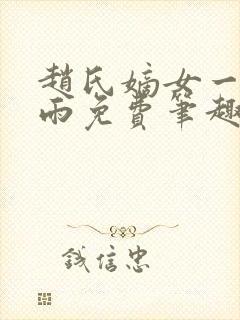 趙氏嫡女一
雨免費筆趣
錢信忠